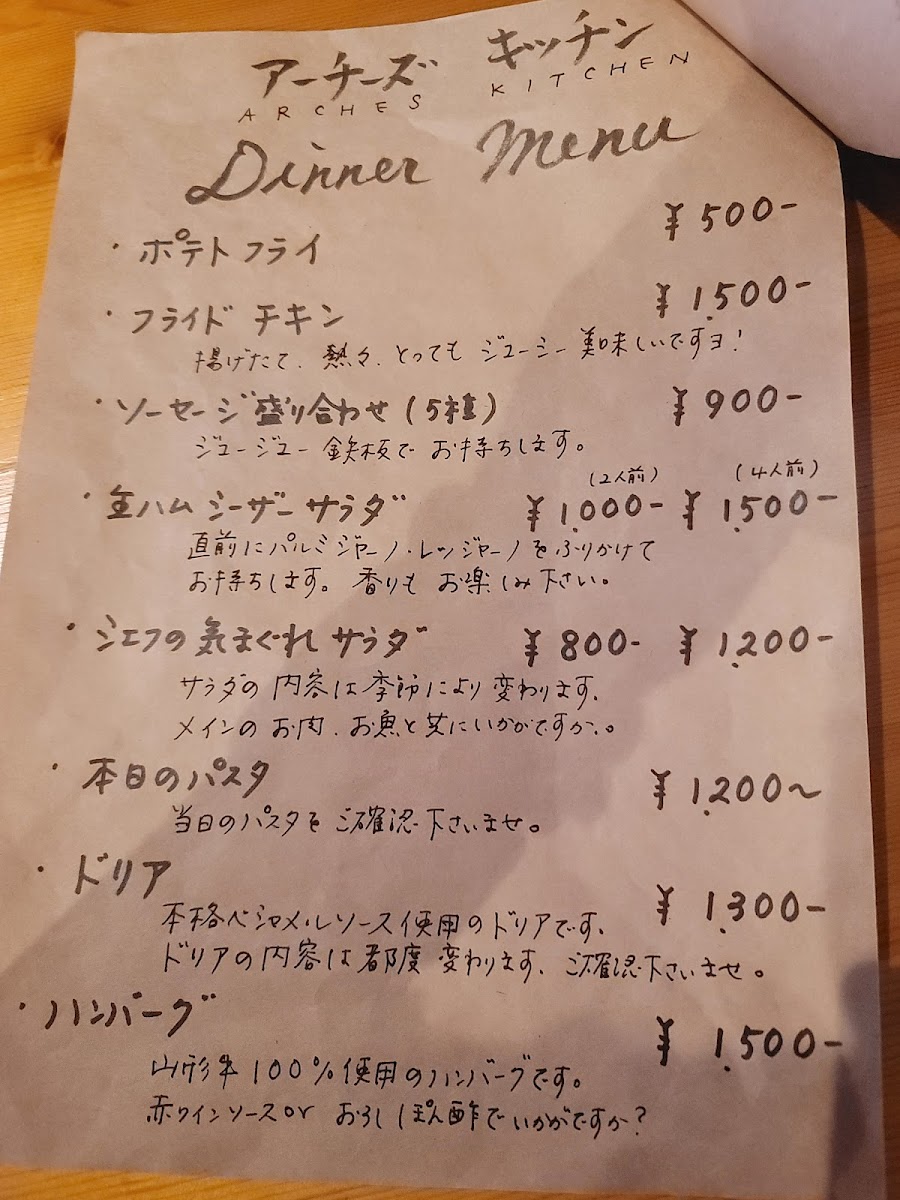 アーチーズ キッチン
ARCHES KITCHEN
Dinner Menu
・ポテトフライ ¥500-
・フライド チキン ¥1,500-
揚げたて、熱々、とっても ジューシー 美味しいですヨ!
・ソーセージ盛り合わせ(5種) ¥900-
ジュージュー 鉄板で お持ちします。
(2人前) (4人前)
・生ハム シーザー サラダ ¥1,000- ¥1,500-
直前にパルミジャーノ・レッジャーノをふりかけて
お持ちします。香りも お楽しみ下さい。
・シェフの気まぐれ サラダ ¥800- ¥1,200-
サラダの 内容は季節により 変わります、
メインの お肉、お魚と共にいかがですか。
・本日のパスタ ¥1,200〜
当日のパスタを ご確認下さいませ。
・ドリア ¥1,300-
本格ベシャメルソース使用のドリアです、
ドリアの内容は都度 変わります、ご確認下さいませ。
・ハンバーグ ¥1,500-
山形牛 100%使用のハンバーグです。
赤ワインソースor おろしぽん酢でいかがですか?